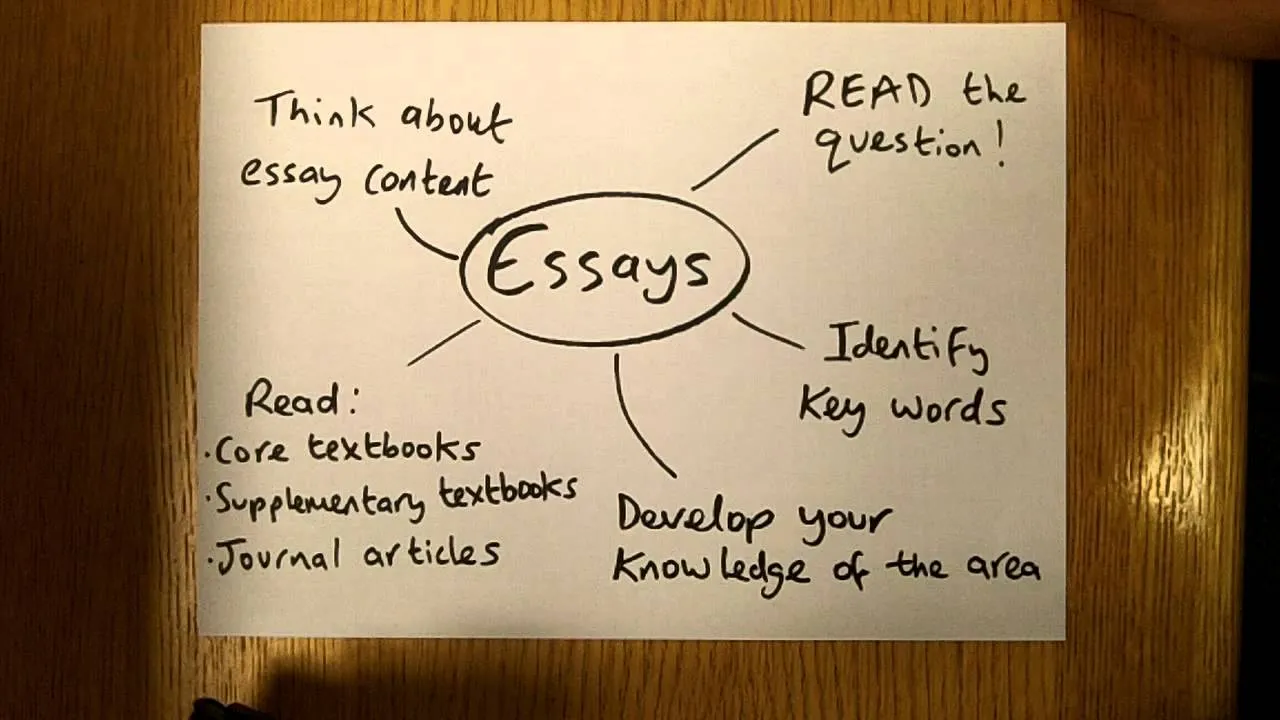 Essays
READ the
question!
Identify
Key words
Develop your
Knowledge of the area
Read:
·Core textbooks
·Supplementary textbooks
·Journal articles
Think about
essay content